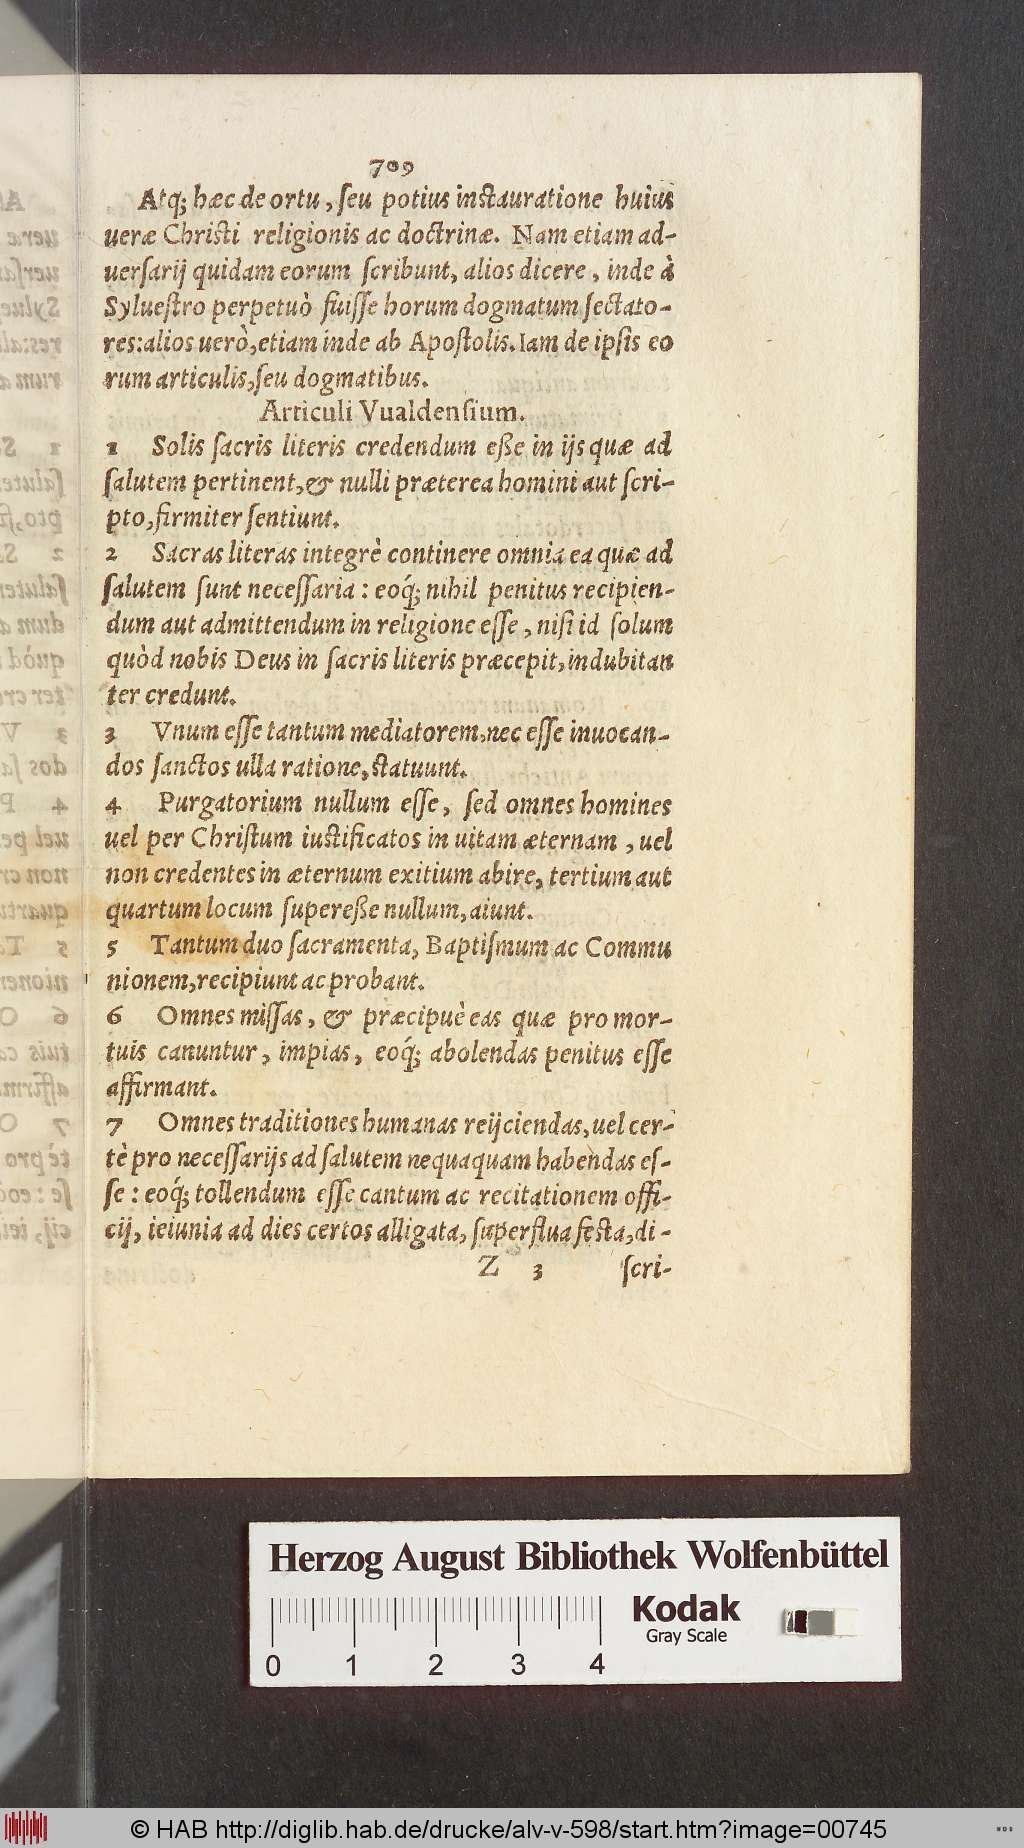 709
Atq; hæc de ortu, ſeu potius inſtauratione huius
ueræ Chriſti religionis ac doctrinæ. Nam etiam ad-
uerſarij quidam eorum ſcribunt, alios dicere, inde à
Sylueſtro perpetuò fuiſſe horum dogmatum ſectato-
res: alios uerò, etiam inde ab Apoſtolis. Iam de ipſis eo
rum articulis, ſeu dogmatibus.
Articuli Vualdenſium.
1 Solis ſacris literis credendum eße in ijs quæ ad
ſalutem pertinent, & nulli præterea homini aut ſcri-
pto, firmiter ſentiunt.
2 Sacras literas integrè continere omnia ea quæ ad
ſalutem ſunt neceſſaria: eoq́; nihil penitus recipien-
dum aut admittendum in religione eſſe, niſi id ſolum
quòd nobis Deus in ſacris literis præcepit, indubitan
ter credunt.
3 Vnum eſſe tantum mediatorem, nec eſſe inuocan-
dos ſanctos ulla ratione, ſtatuunt.
4 Purgatorium nullum eſſe, ſed omnes homines
uel per Chriſtum iuſtificatos in uitam æternam, uel
non credentes in æternum exitium abire, tertium aut
quartum locum ſupereße nullum, aiunt.
5 Tantum duo ſacramenta, Baptiſmum ac Commu
nionem, recipiunt ac probant.
6 Omnes miſſas, & præcipuè eas quæ pro mor-
tuis canuntur, impias, eoq́; abolendas penitus eſſe
affirmant.
7 Omnes traditiones humanas reijciendas, uel cer-
tè pro neceſſarijs ad ſalutem nequaquam habendas eſ-
ſe: eoq́; tollendum eſſe cantum ac recitationem offi-
cij, ieiunia ad dies certos alligata, ſuperflua feſta, di-
Z 3 ſcri-
Herzog August Bibliothek Wolfenbüttel
Kodak
Gray Scale
0 1 2 3 4
© HAB http://diglib.hab.de/drucke/alv-v-598/start.htm?image=00745